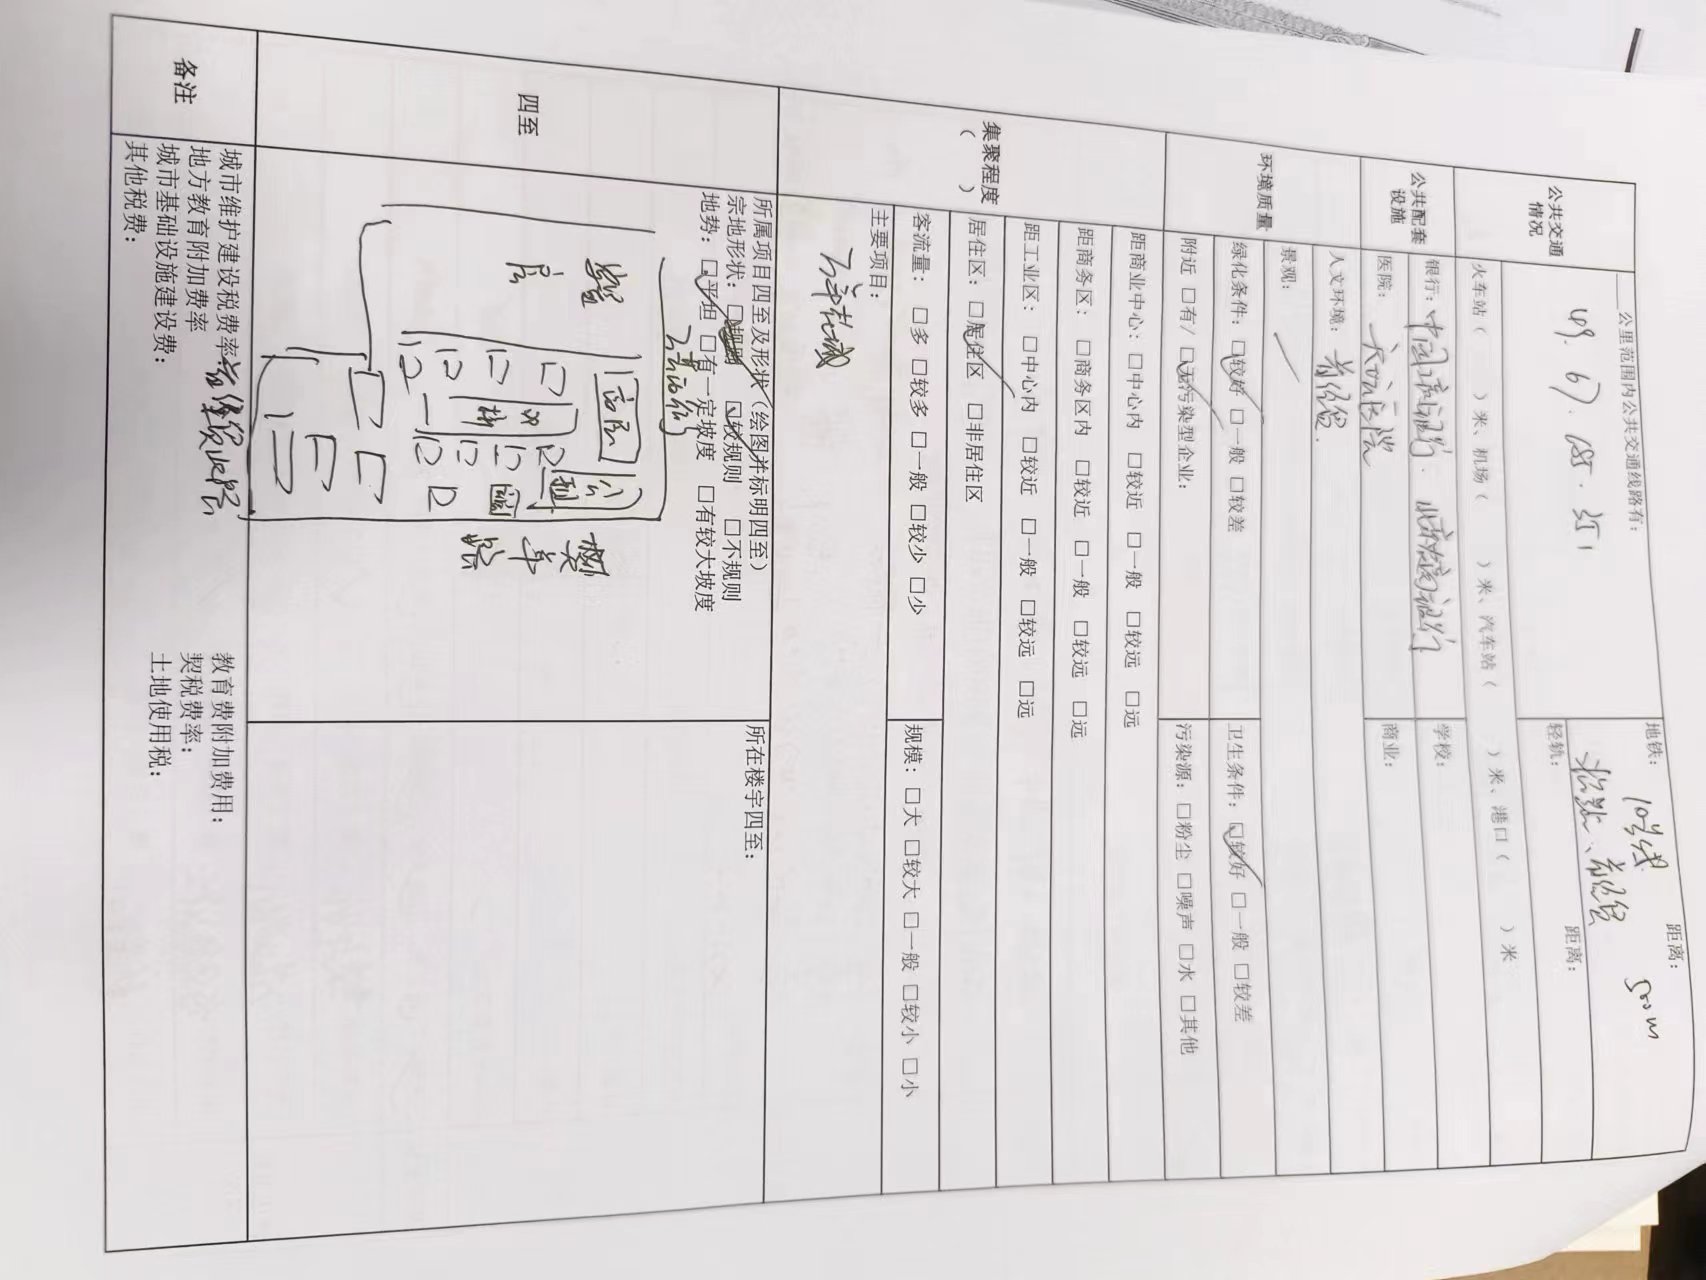 公共交通情况
公里范围内公共交通线路有:
49. 67. 685. 351
地铁: 10号线 距离: 500m
首经贸
轻轨: 距离:
火车站( )米、机场( )米、汽车站( )米、港口( )米
公共配套设施
银行: 中国商银行. 银行
学校:
医院: 医院
商业:
环境质量
人文环境: 首经贸.
景观:
绿化条件: □较好 □一般 □较差
卫生条件: □较好 □一般 □较差
附近 □有/ □无污染型企业:
污染源: □粉尘 □噪声 □水 □其他
集聚程度
( )
距商业中心: □中心内 □较近 □一般 □较远 □远
距商务区: □商务区内 □较近 □一般 □较远 □远
距工业区: □中心内 □较近 □一般 □较远 □远
居住区: □居住区 □非居住区
客流量: □多 □较多 □一般 □较少 □少
规模: □大 □较大 □一般 □较小 □小
主要项目:
四至
所属项目四至及形状(绘图并标明四至)
所在楼宇四至:
宗地形状: □规则 □较规则 □不规则
地势: □平坦 □有一定坡度 □有较大坡度
公园
樊羊路
首经贸北路
备注
城市维护建设税费率:
教育费附加费用:
地方教育附加费率
契税费率:
城市基础设施建设费:
土地使用税:
其他税费: